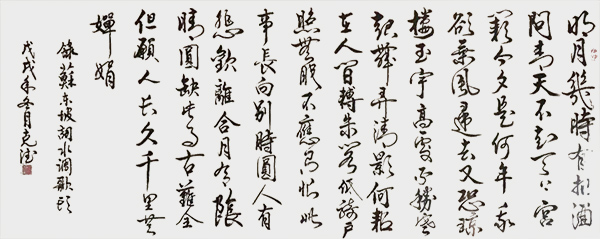 明月幾時有把酒
問青天不知天上宮
闕今夕是何年我
欲乘風歸去又恐瓊
樓玉宇高處不勝寒
起舞弄清影何似
在人間轉朱閣低綺戶
照無眠不應有恨何
事長向別時圓人有
悲歡離合月有陰
晴圓缺此事古難全
但願人長久千里共
嬋娟
錄蘇東坡詞水調歌頭
戊戌年冬月